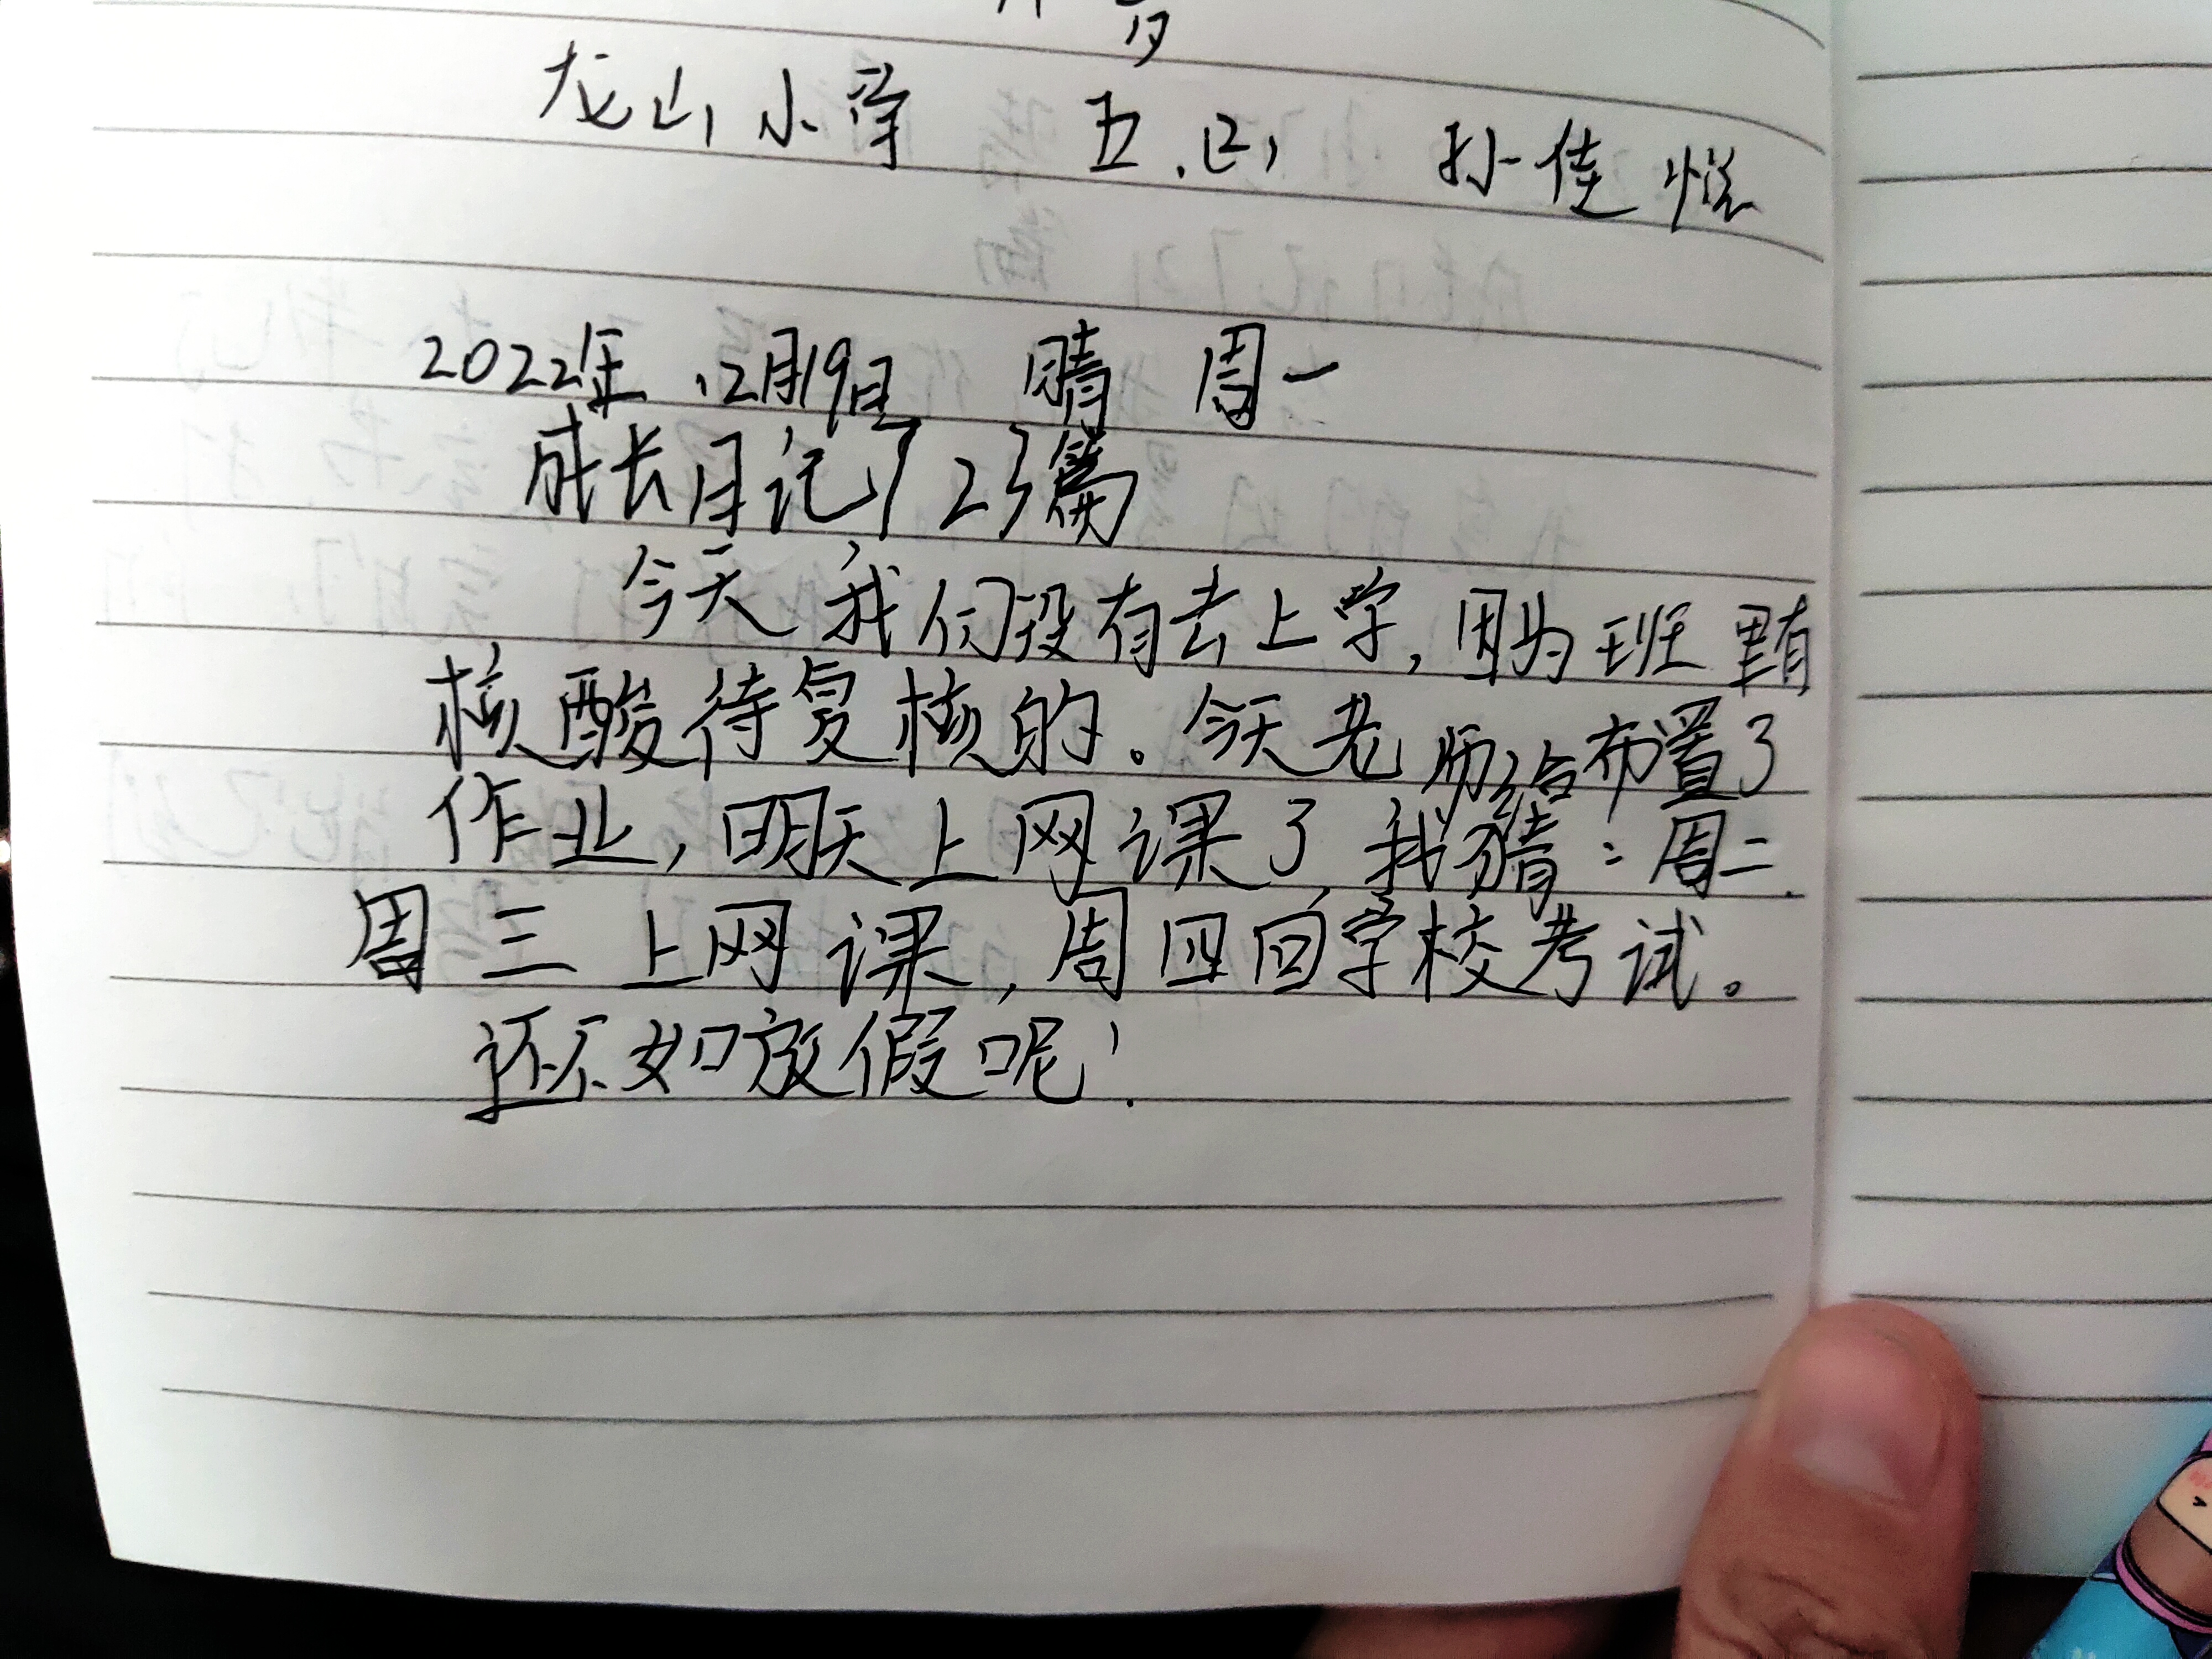 龙山小学 五.(2) 孙佳悦
2022年12月19日 晴 周一
成长日记723篇
今天我们没有去上学,因为班里有
核酸待复核的。今天老师给布置了
作业,明天上网课了,我猜:周二.
周三上网课,周四回学校考试。
还不如放假呢!